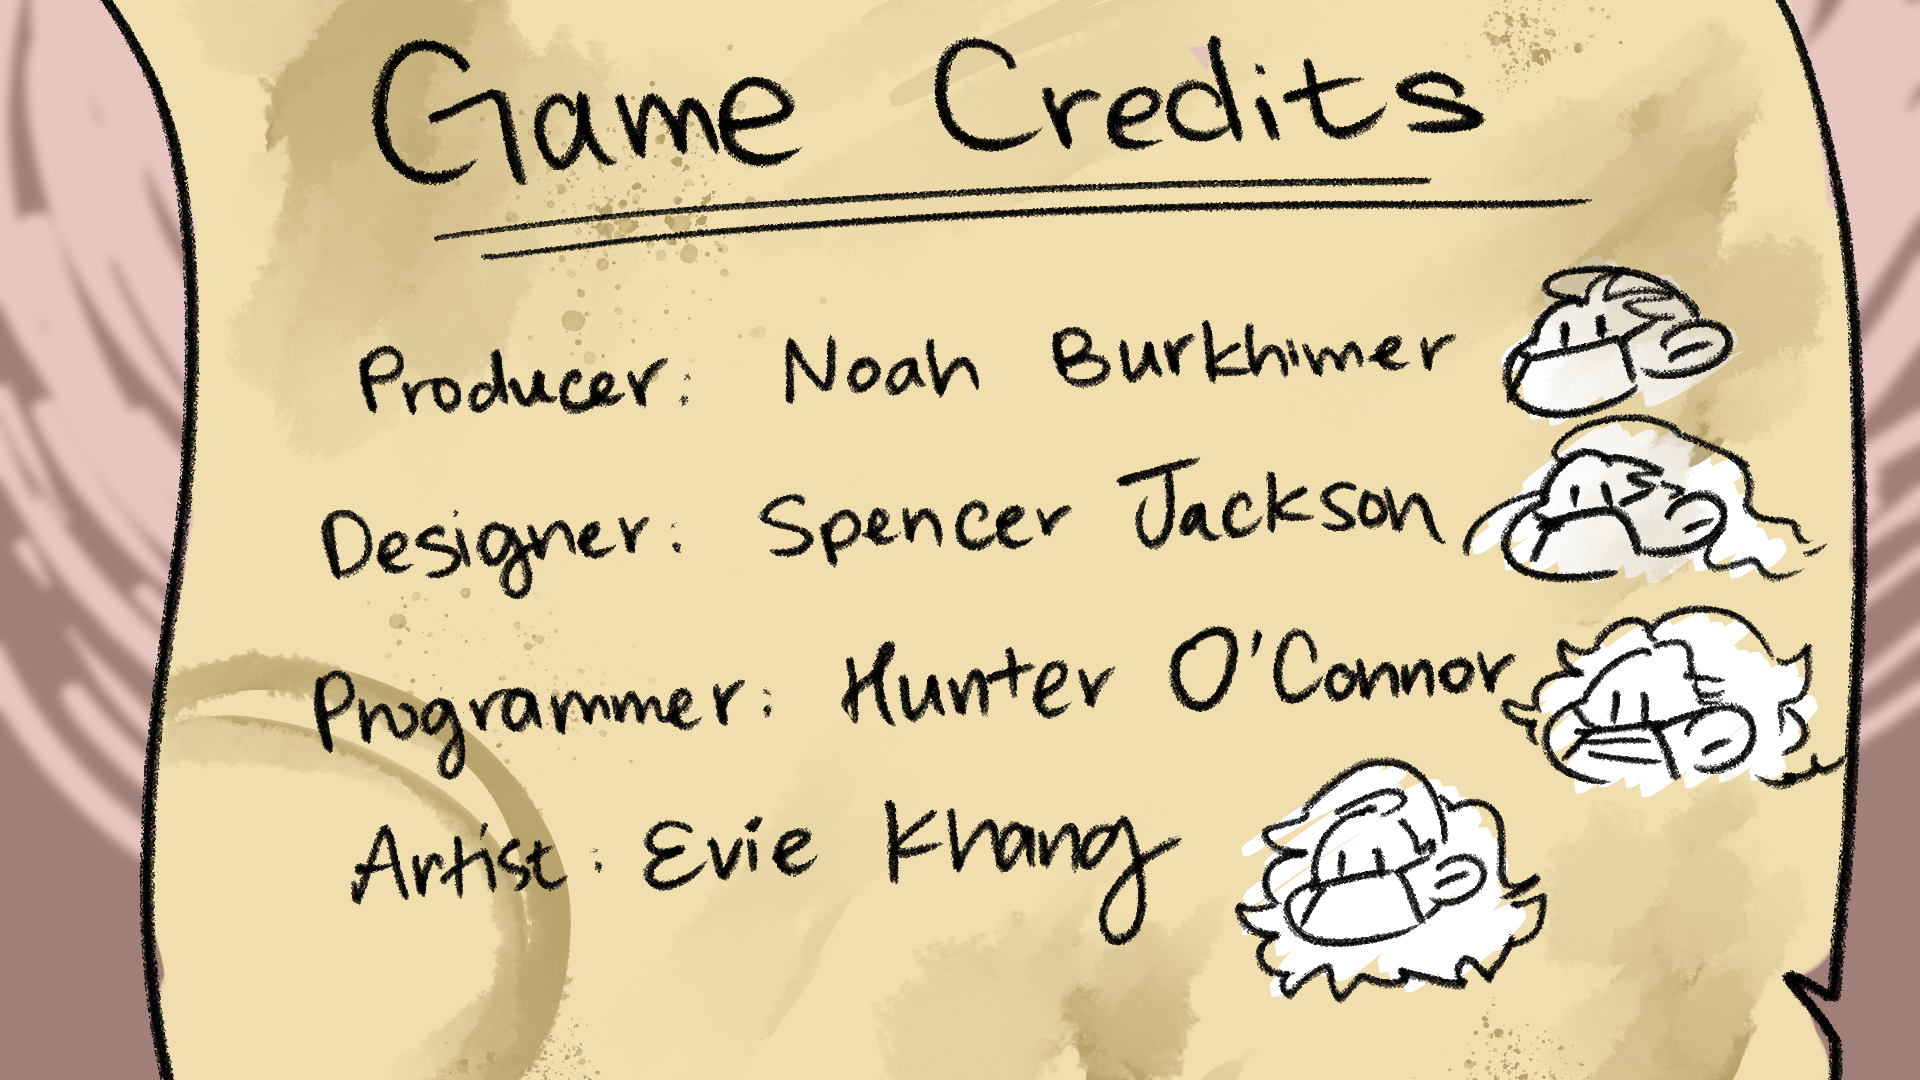 Game Credits
Producer: Noah Burkhimer
Designer: Spencer Jackson
Programmer: Hunter O'Connor
Artist: Evie Khang